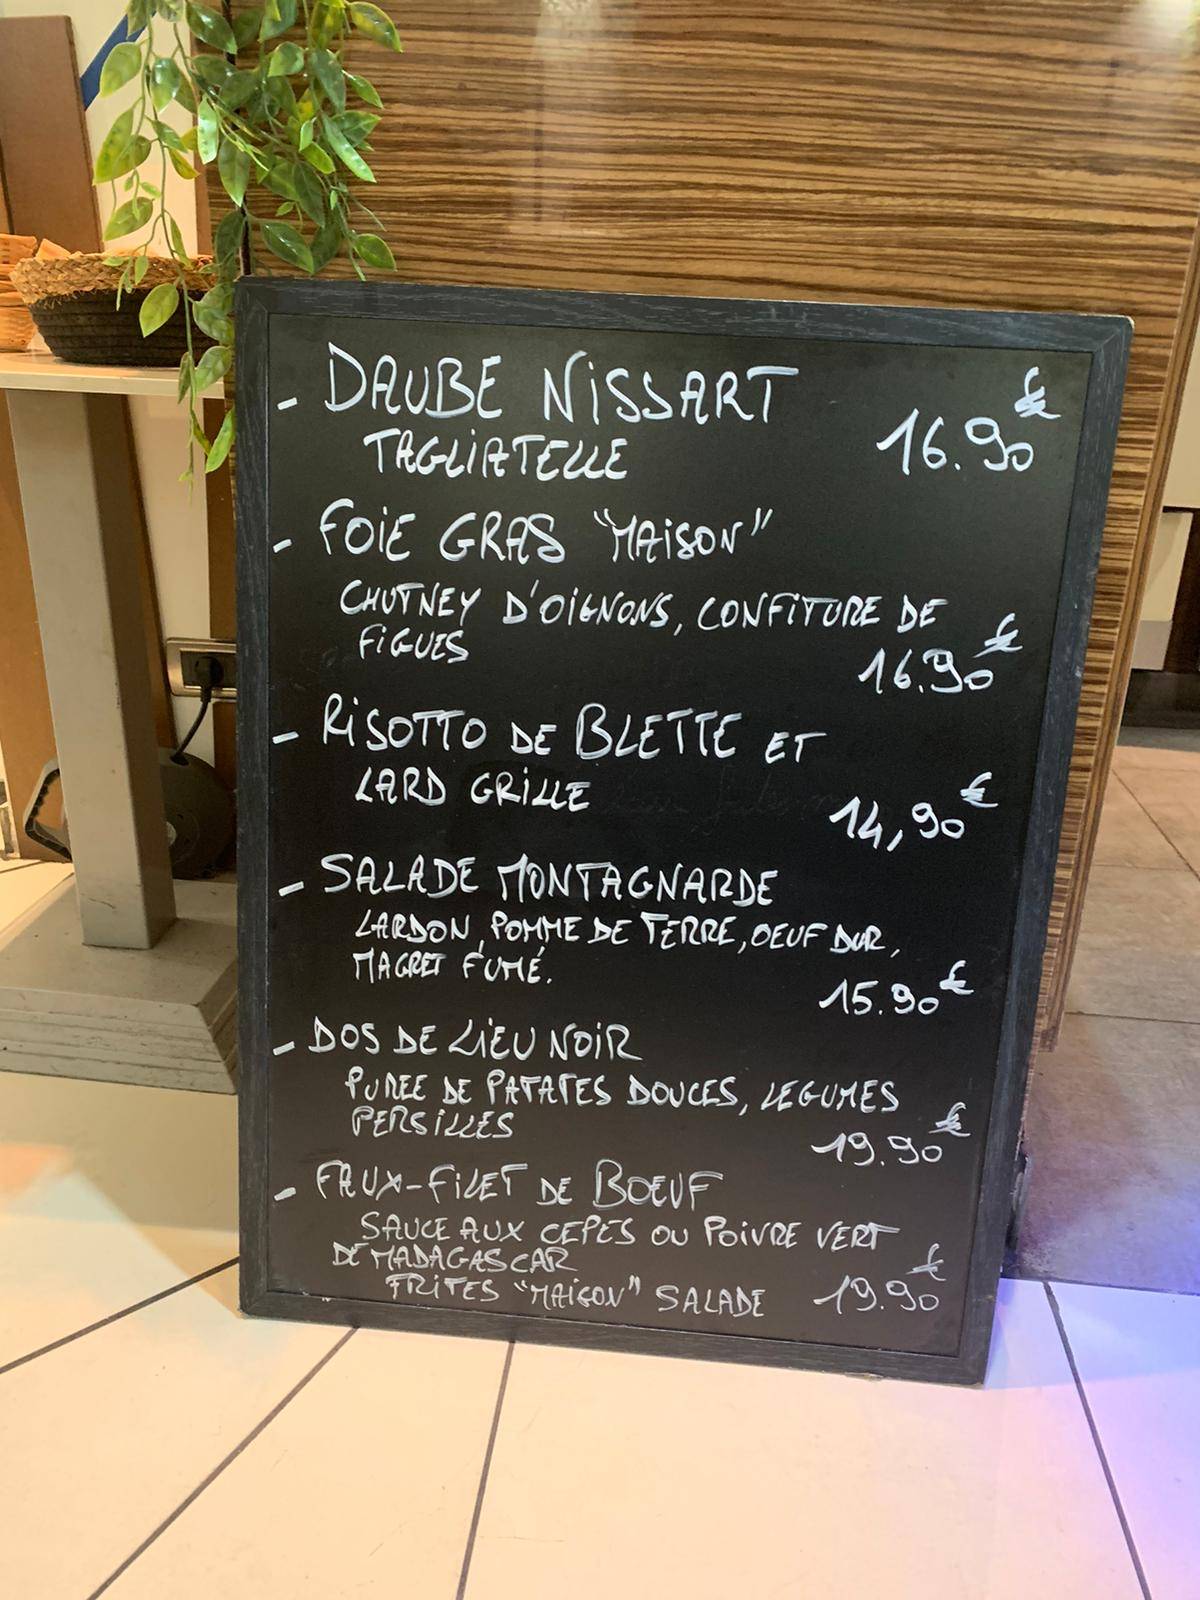 - DAUBE NISSART
TAGLIATELLE 16.90€
- FOIE GRAS "MAISON"
CHUTNEY D'OIGNONS, CONFITURE DE
FIGUES 16.90€
- RISOTTO DE BLETTE ET
LARD GRILLE 14,90€
- SALADE MONTAGNARDE
LARDON, POMME DE TERRE, OEUF DUR,
MAGRET FUMÉ. 15.90€
- DOS DE LIEU NOIR
PUREE DE PATATES DOUCES, LEGUMES
PERSILLES 19.90€
- FAUX-FILET DE BOEUF
SAUCE AUX CEPES OU POIVRE VERT
DE MADAGASCAR
FRITES "MAISON" SALADE 19.90€